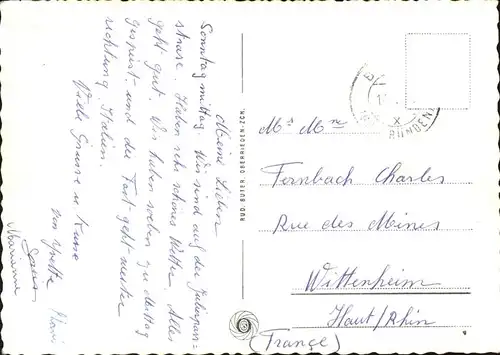 Meine Lieben
Sonntag mittag. Wir sind auf der Julierpass=
strasse. Haben sehr schönes Wetter. Alles
geht gut. Wir haben soeben zu Mittag
gespeist und die Fart geht weiter
richtung Italien.
Viele Grüsse u Küsse
von Yvette
Marianne
RUD. SUTER, OBERRIEDEN-ZCH.
BÜNDEN
X
Mr Mme
Fernbach Charles
Rue des Mines
Wittenheim
Haut/Rhin
(France)